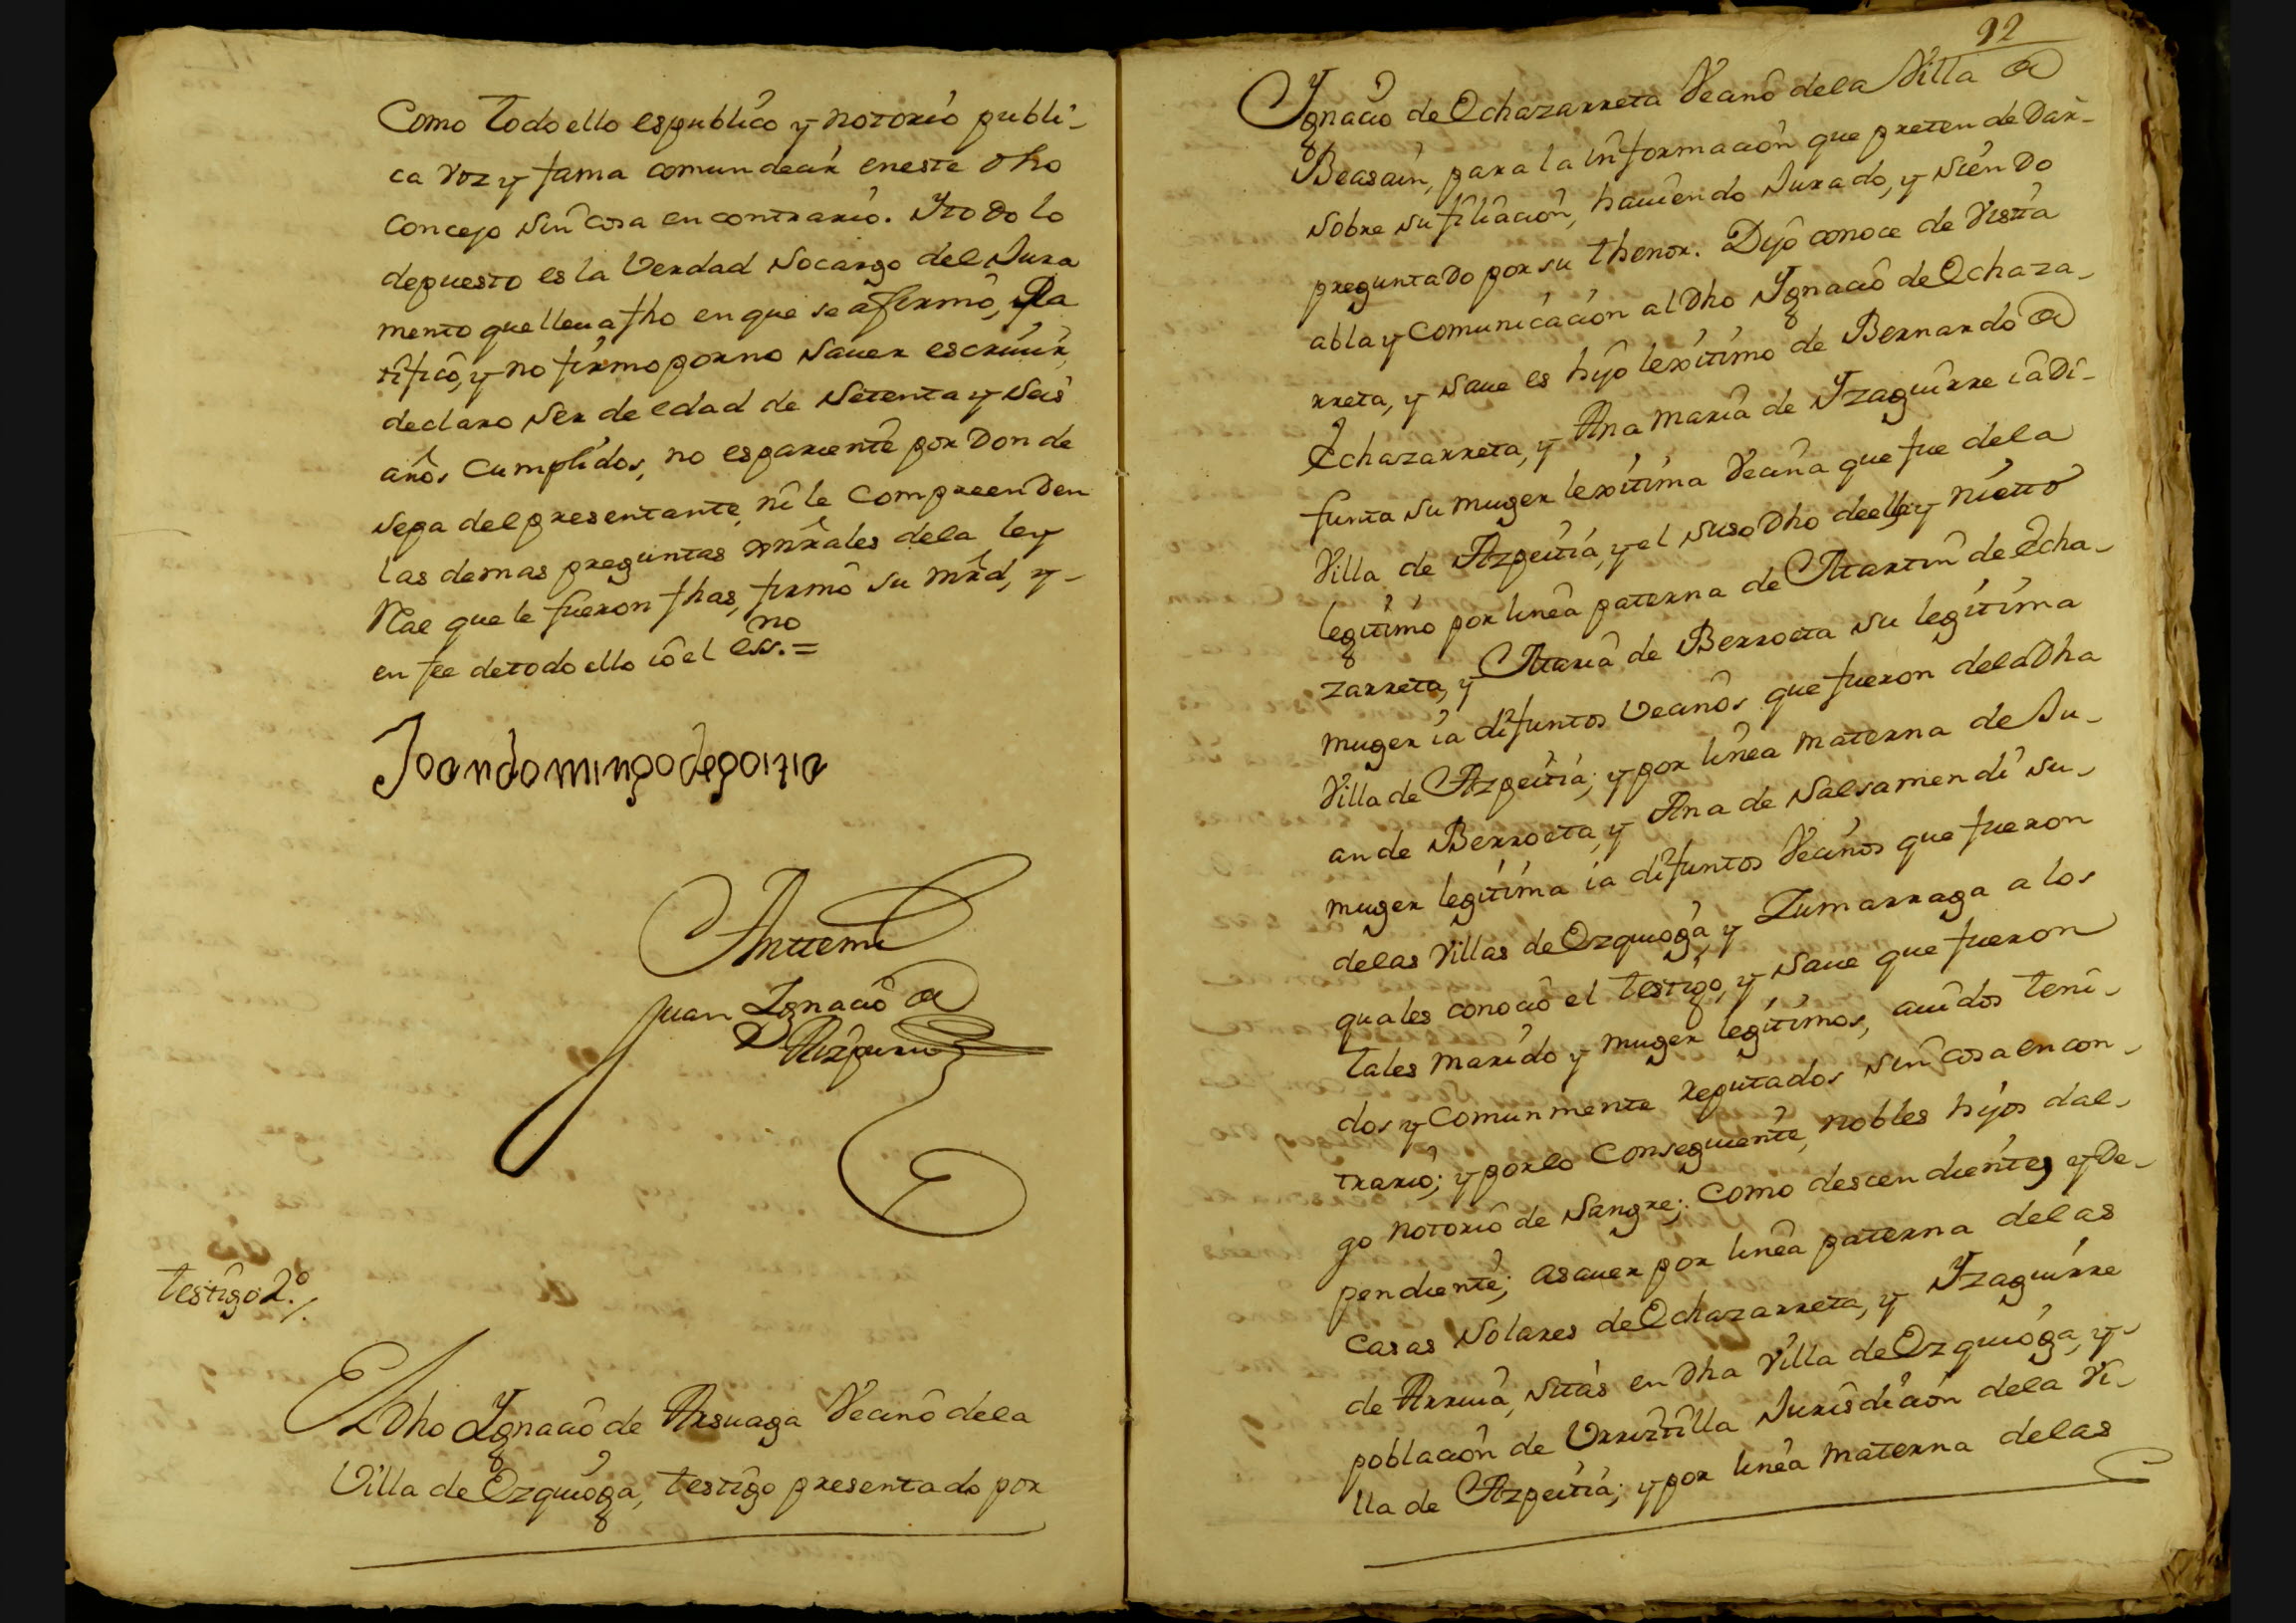 Como todo ello es publico y notorio publi-
ca voz y fama comun decir en este dho
concejo sin cosa en contrario. Y todo lo
depuesto es la verdad socargo del Jura
mento que lleua fho en que se afirmó, Ra
tificó, y no firmo por no sauer escriuir,
declaro ser de edad de setenta y seis
años cumplidos, no es pariente por donde
sepa del presentante, ni le compreenden
las demas preguntas xnrales dela ley
Rael que le fueron fhas, firmó su mrd, y-
en fee de todo ello io el essno.=
Joandomingodegoitia
Antemi
Juan Ignacio de
Aizpuru
testigo 2º./.
El Dho Ygnacio de Arsuaga Vecino dela
Villa de Ezquioga, testigo presentado por
92
Ygnacio de Echazarreta Vecino dela Villa de
Beasain, para la informacion que pretende dar-
sobre su filiacion, hauiendo Jurado, y siendo
preguntado por su thenor. Dijo conoce de vista
abla y comunicacion al dho Ygnacio de Echaza-
rreta, y saue es hijo lexitimo de Bernardo de
Echazarreta, y Ana Maria de Yzaguirre ia di-
funta su muger lexitima Vecina que fue dela
Villa de Azpeitia, y el susodho deella y nieto
legitimo por linea paterna de Martin de Echa-
zarreta, y Maria de Berroeta su legitima
muger ia difuntos vecinos que fueron dela Dha
Villa de Azpeitia; y por linea materna de Ju-
an de Berroeta, y Ana de Salsamendi su-
muger legitima ia difuntos Vecinos que fueron
delas Villas de Ezquioga, y Zumarraga a los
quales conocio el testigo, y saue que fueron
tales marido y muger legitimos, auidos teni-
dos y comunmente reputados sin cosa en con-
trario; y por lo conseguiente, nobles hijos dal-
go notorio de sangre; como descendientes y De-
pendiente; asauer por linea paterna delas
casas solares de Echazarreta, y Yzaguirre
de Arriua, sitas en Dha Villa de Ezquioga, y-
poblacion de Urrestilla Jurisdicion dela Vi-
lla de Azpeitia; y por linea materna delas